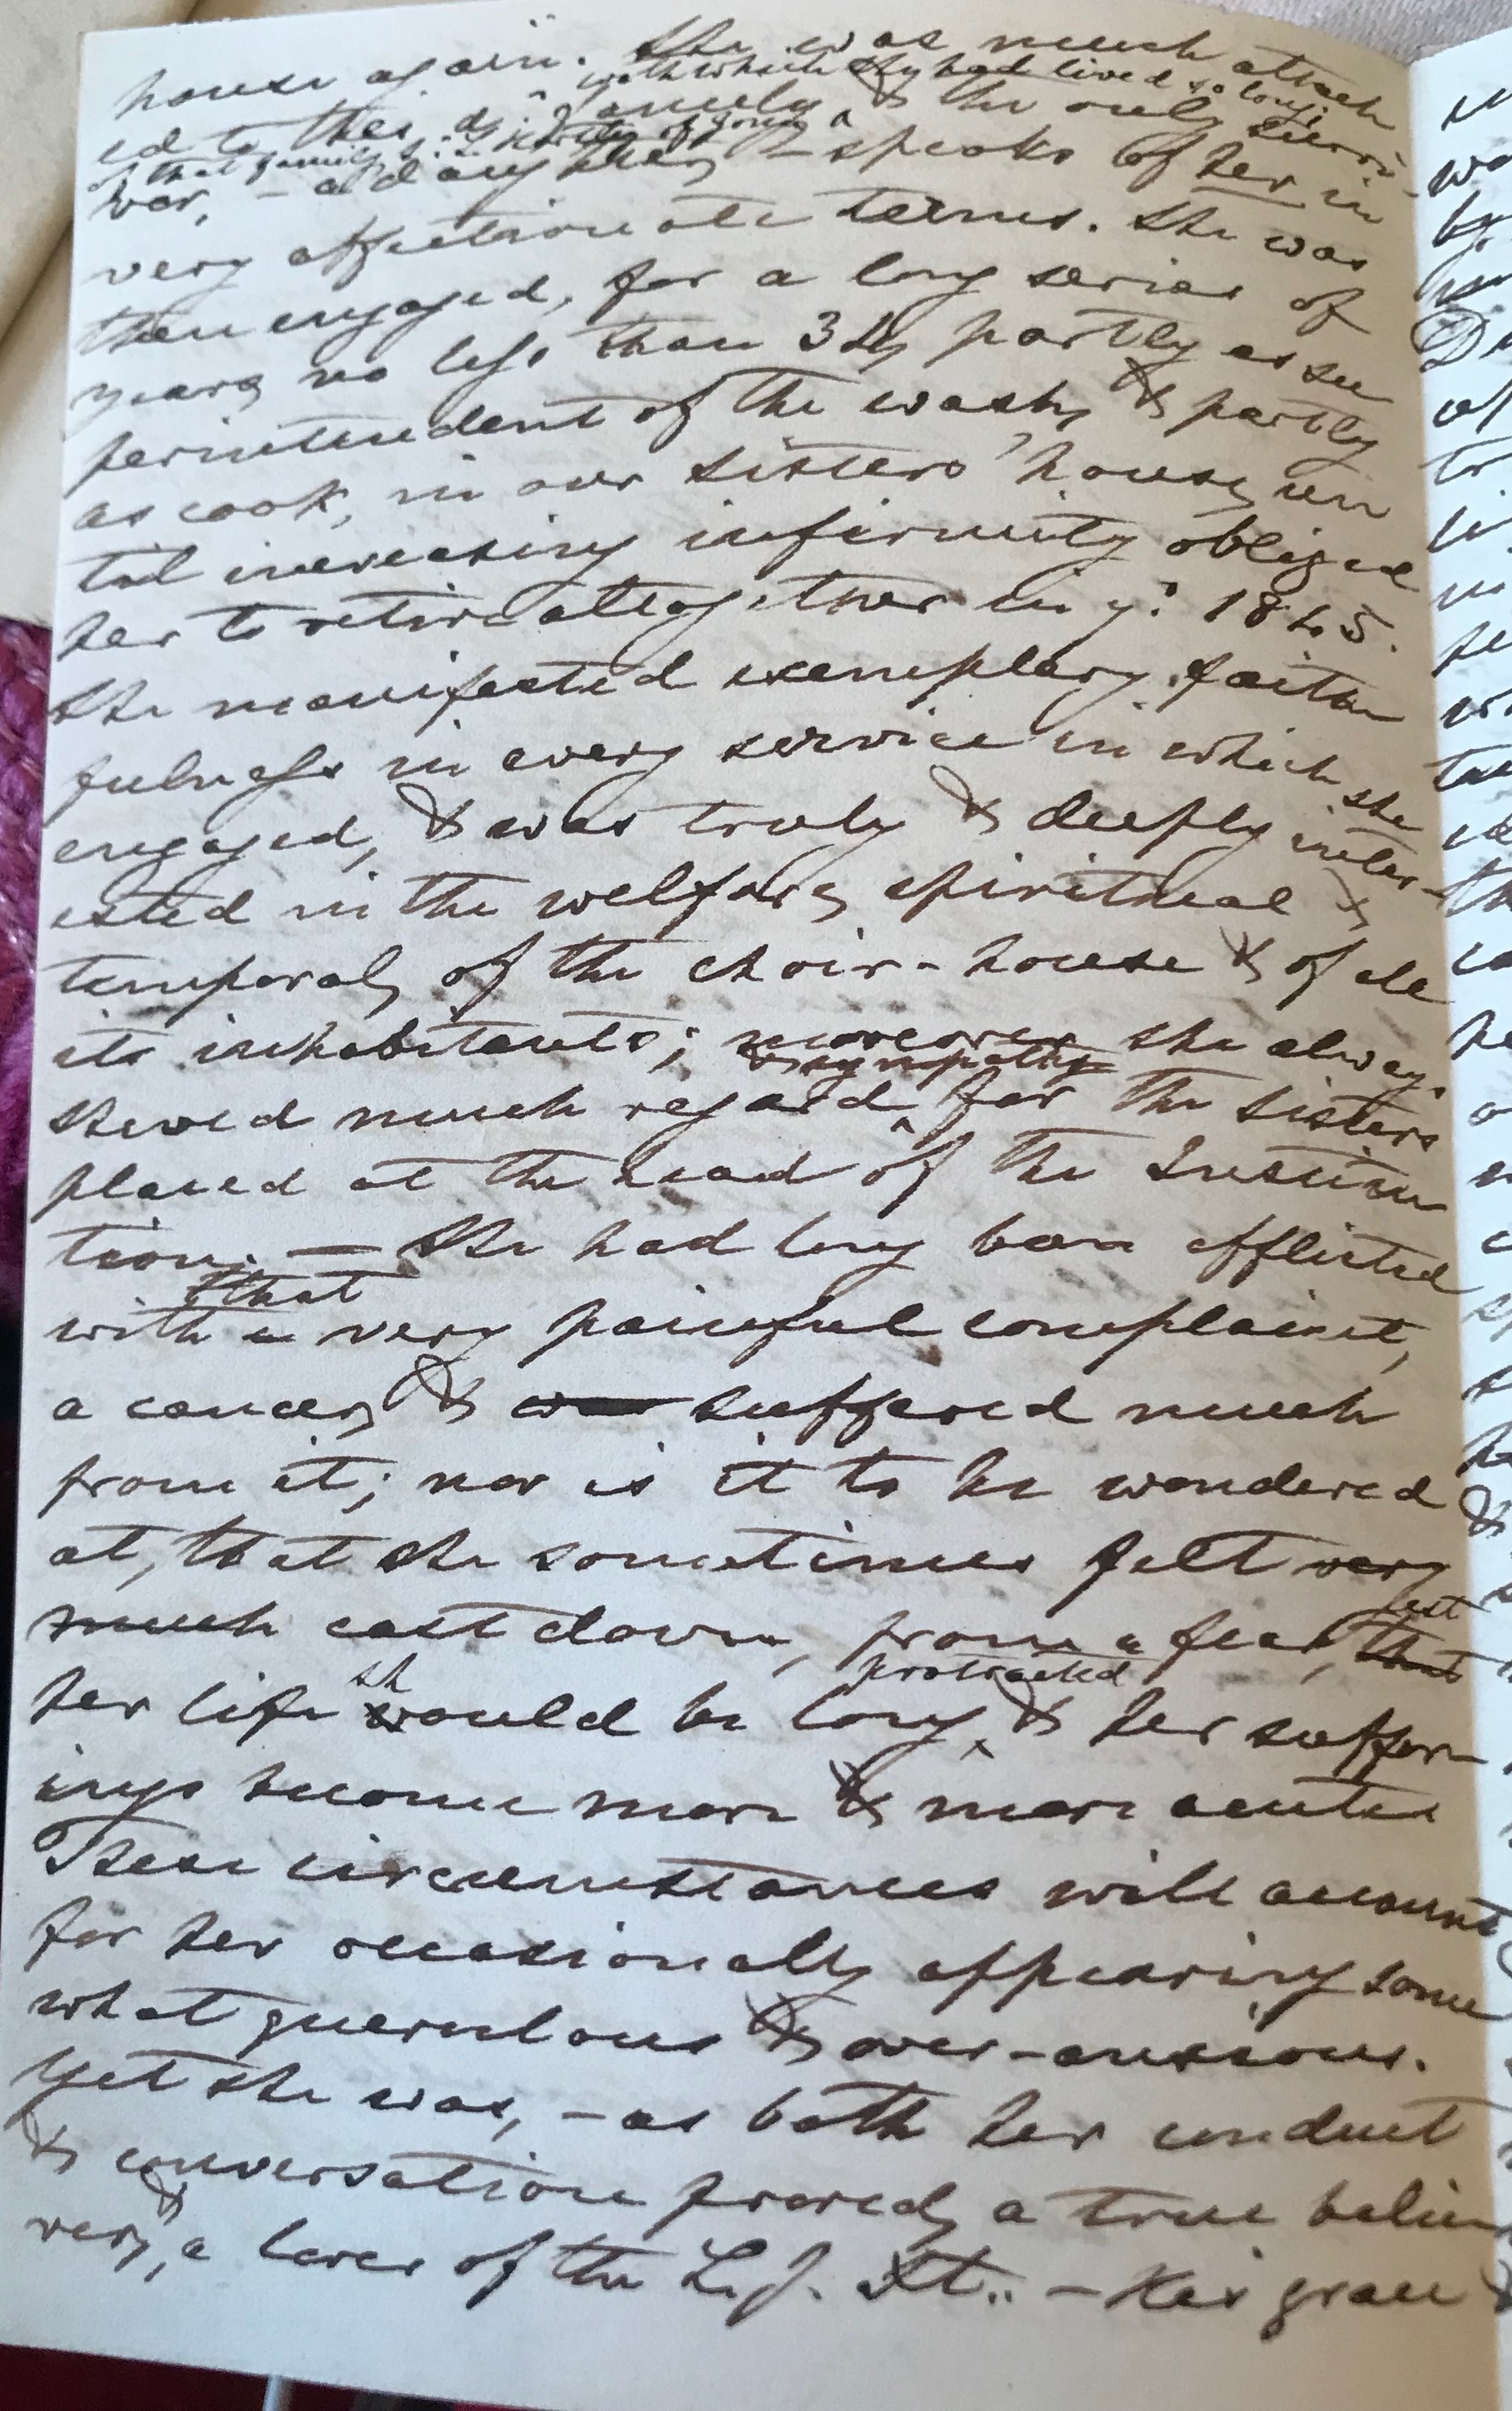 house again. She was much attach
with which she had lived so long;
ed to this family, & the only survi-
of that family
vor, – – speaks of her in
very affectionate terms. She was
then engaged, for a long series of
years, no less than 34, partly as su
perintendent of the wash, & partly
as cook, in our sisters' house, un
til increasing infirmity obliged
her to retire altogether in y: 1845.
She manifested exemplary faith
fulness in every service in which she
engaged, & was truly & deeply inter-
ested in the welfare, spiritual &
temporal, of the choir-house & of all
its inhabitants; moreover she always
& sympathy
shewed much regard for the sisters
placed at the head of the Institu
tion. — She had long been afflicted
that
with a very painful complaint,
a cancer, & was suffered much
from it; nor is it to be wondered
at, that she sometimes felt very
lest
much cast down, from a fear, that
sh protracted
her life would be long, & her suffer-
ings become more & more acute
These circumstances will account
for her occasionally appearing some
what querulous & over-anxious.
Yet she was, – as both her conduct
& conversation proved, a true belie
ver, & a lover of the L. J. Xt.. – His grace &